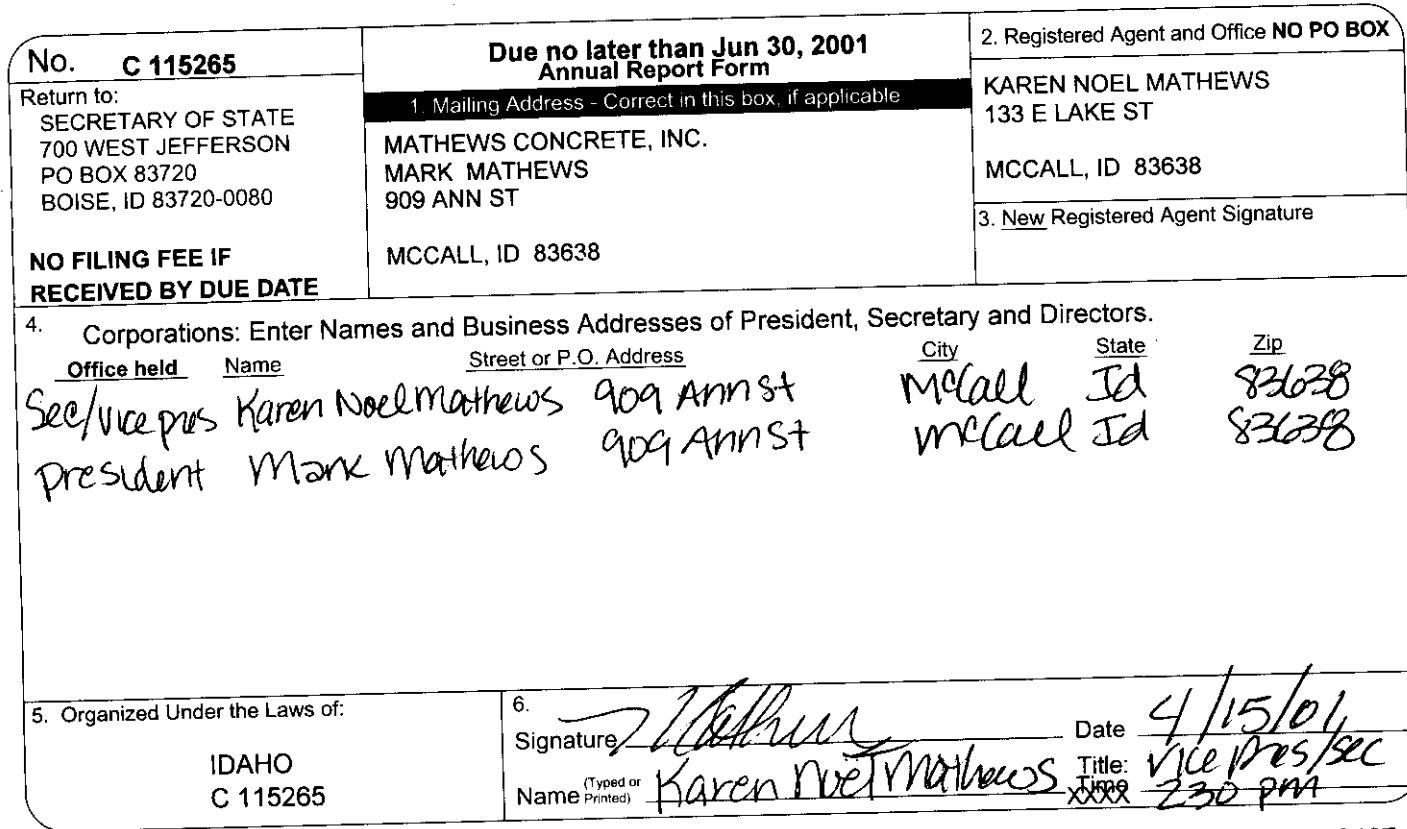 No. C 115265
Return to:
SECRETARY OF STATE
700 WEST JEFFERSON
PO BOX 83720
BOISE, ID 83720-0080
NO FILING FEE IF
RECEIVED BY DUE DATE
Due no later than Jun 30, 2001
Annual Report Form
1. Mailing Address - Correct in this box, if applicable
MATHEWS CONCRETE, INC.
MARK MATHEWS
909 ANN ST
MCCALL, ID 83638
2. Registered Agent and Office NO PO BOX
KAREN NOEL MATHEWS
133 E LAKE ST
MCCALL, ID 83638
3. New Registered Agent Signature
4. Corporations: Enter Names and Business Addresses of President, Secretary and Directors.
Office held Name Street or P.O. Address City State Zip
Sec/vice pres Karen Noel Mathews 909 Ann St McCall Id 83638
president Mark Mathews 909 Ann St McCall Id 83638
5. Organized Under the Laws of:
IDAHO
C 115265
6.
Signature Date 4/15/01
Name (Typed or Printed) Karen Noel Mathews Title: vice pres/sec
Time 230 pm